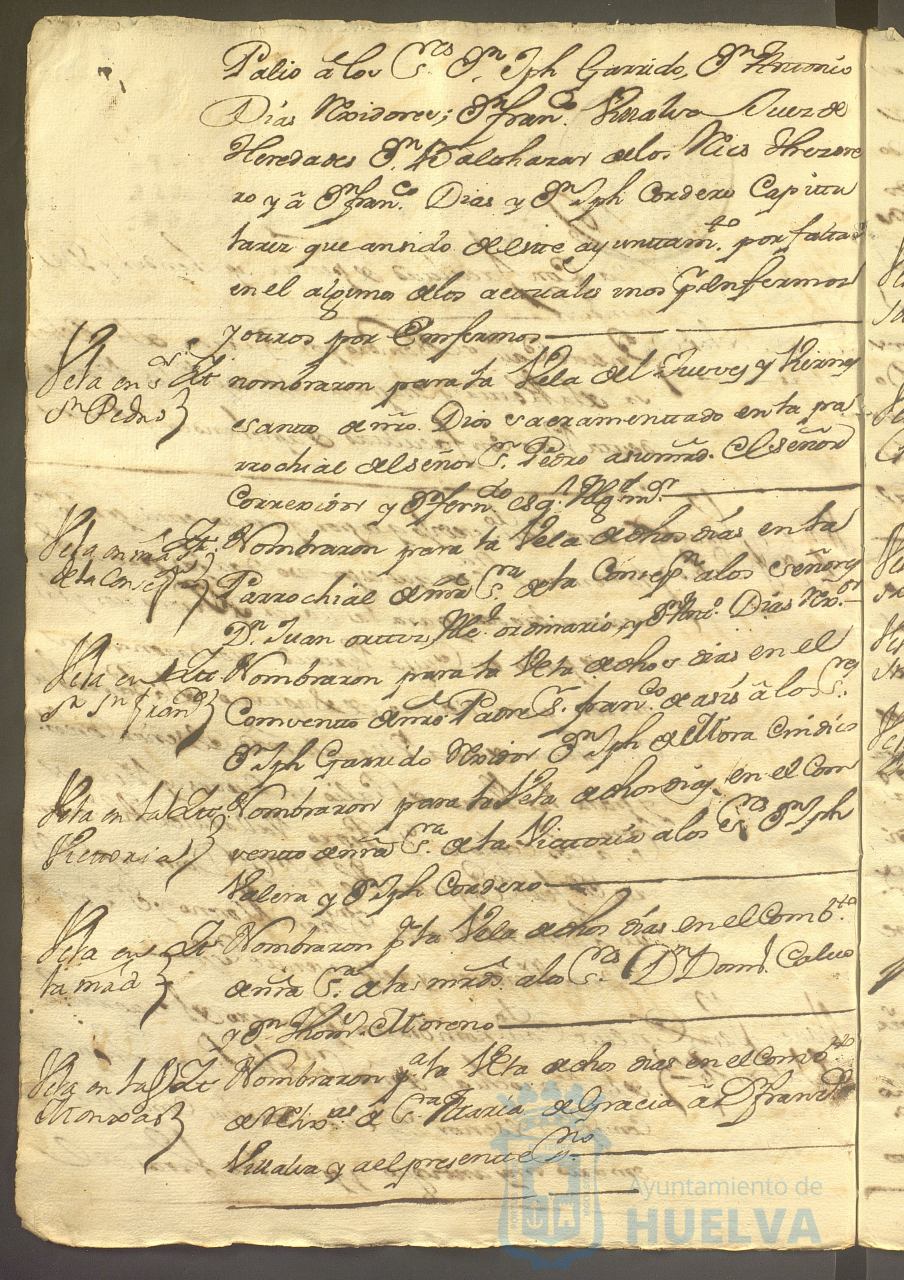 Palio â los Sres Dn Jph Garrido, Dn Antonio
Dias Rexidores; Dn Franco Villalva Juez de
Heredades Dn Balthazar de los Rios Thezore
ro y â Dn Franco Dias y Dn Jph Cordero Capitu
lares que an sido de este ayuntamto por falta
en el algunos de los actuales unos pr Enfermos
y otros por Enfermos
Vela en sr
Sn Pedro
Yt nombraron para la Vela del Jueves y Viernes
santo de nro Dios sacramentado en la pa
rrochial del señor Sn Pedro el señor
Correxidor y Dn
Vela en nra Sra
de la Concepn
Yt Nombraron para la Vela de dhos dias en la
Parrochial de nra Sra de la Concepn a los señores
Dn Juan ortiz Alce ordinario, y Dn Anto Dias Rexor
Vela en
Sn Franco
Yt Nombraron para la Vela de dhos dias en el
Convento de nro Padre Sn Franco de asis â los Sres
Dn Jph Garrido Rexidor Dn Jph de Mora Cindico
Vela en la
Victoria
Yt Nombraron para la Vela de dhos dias en el Con
vento de nra Sra de la Victoria a los Sres Dn Jph
Valera y Dn Jph Cordero
Vela en
la mrd
Yt Nombraron pa la Vela de dhos dias en el Combto
de nra Sra de las mrds a los Sres Dn Domo Calvo
y Dn Thoms Moreno
Vela en las
Monxas
Yt Nombraron pa la Vela de dhos dias en el Combto
de Relixas de Sta Maria de Gracia â Dn Franco
Villalva y a el presente Sno
Ayuntamiento de
HUELVA